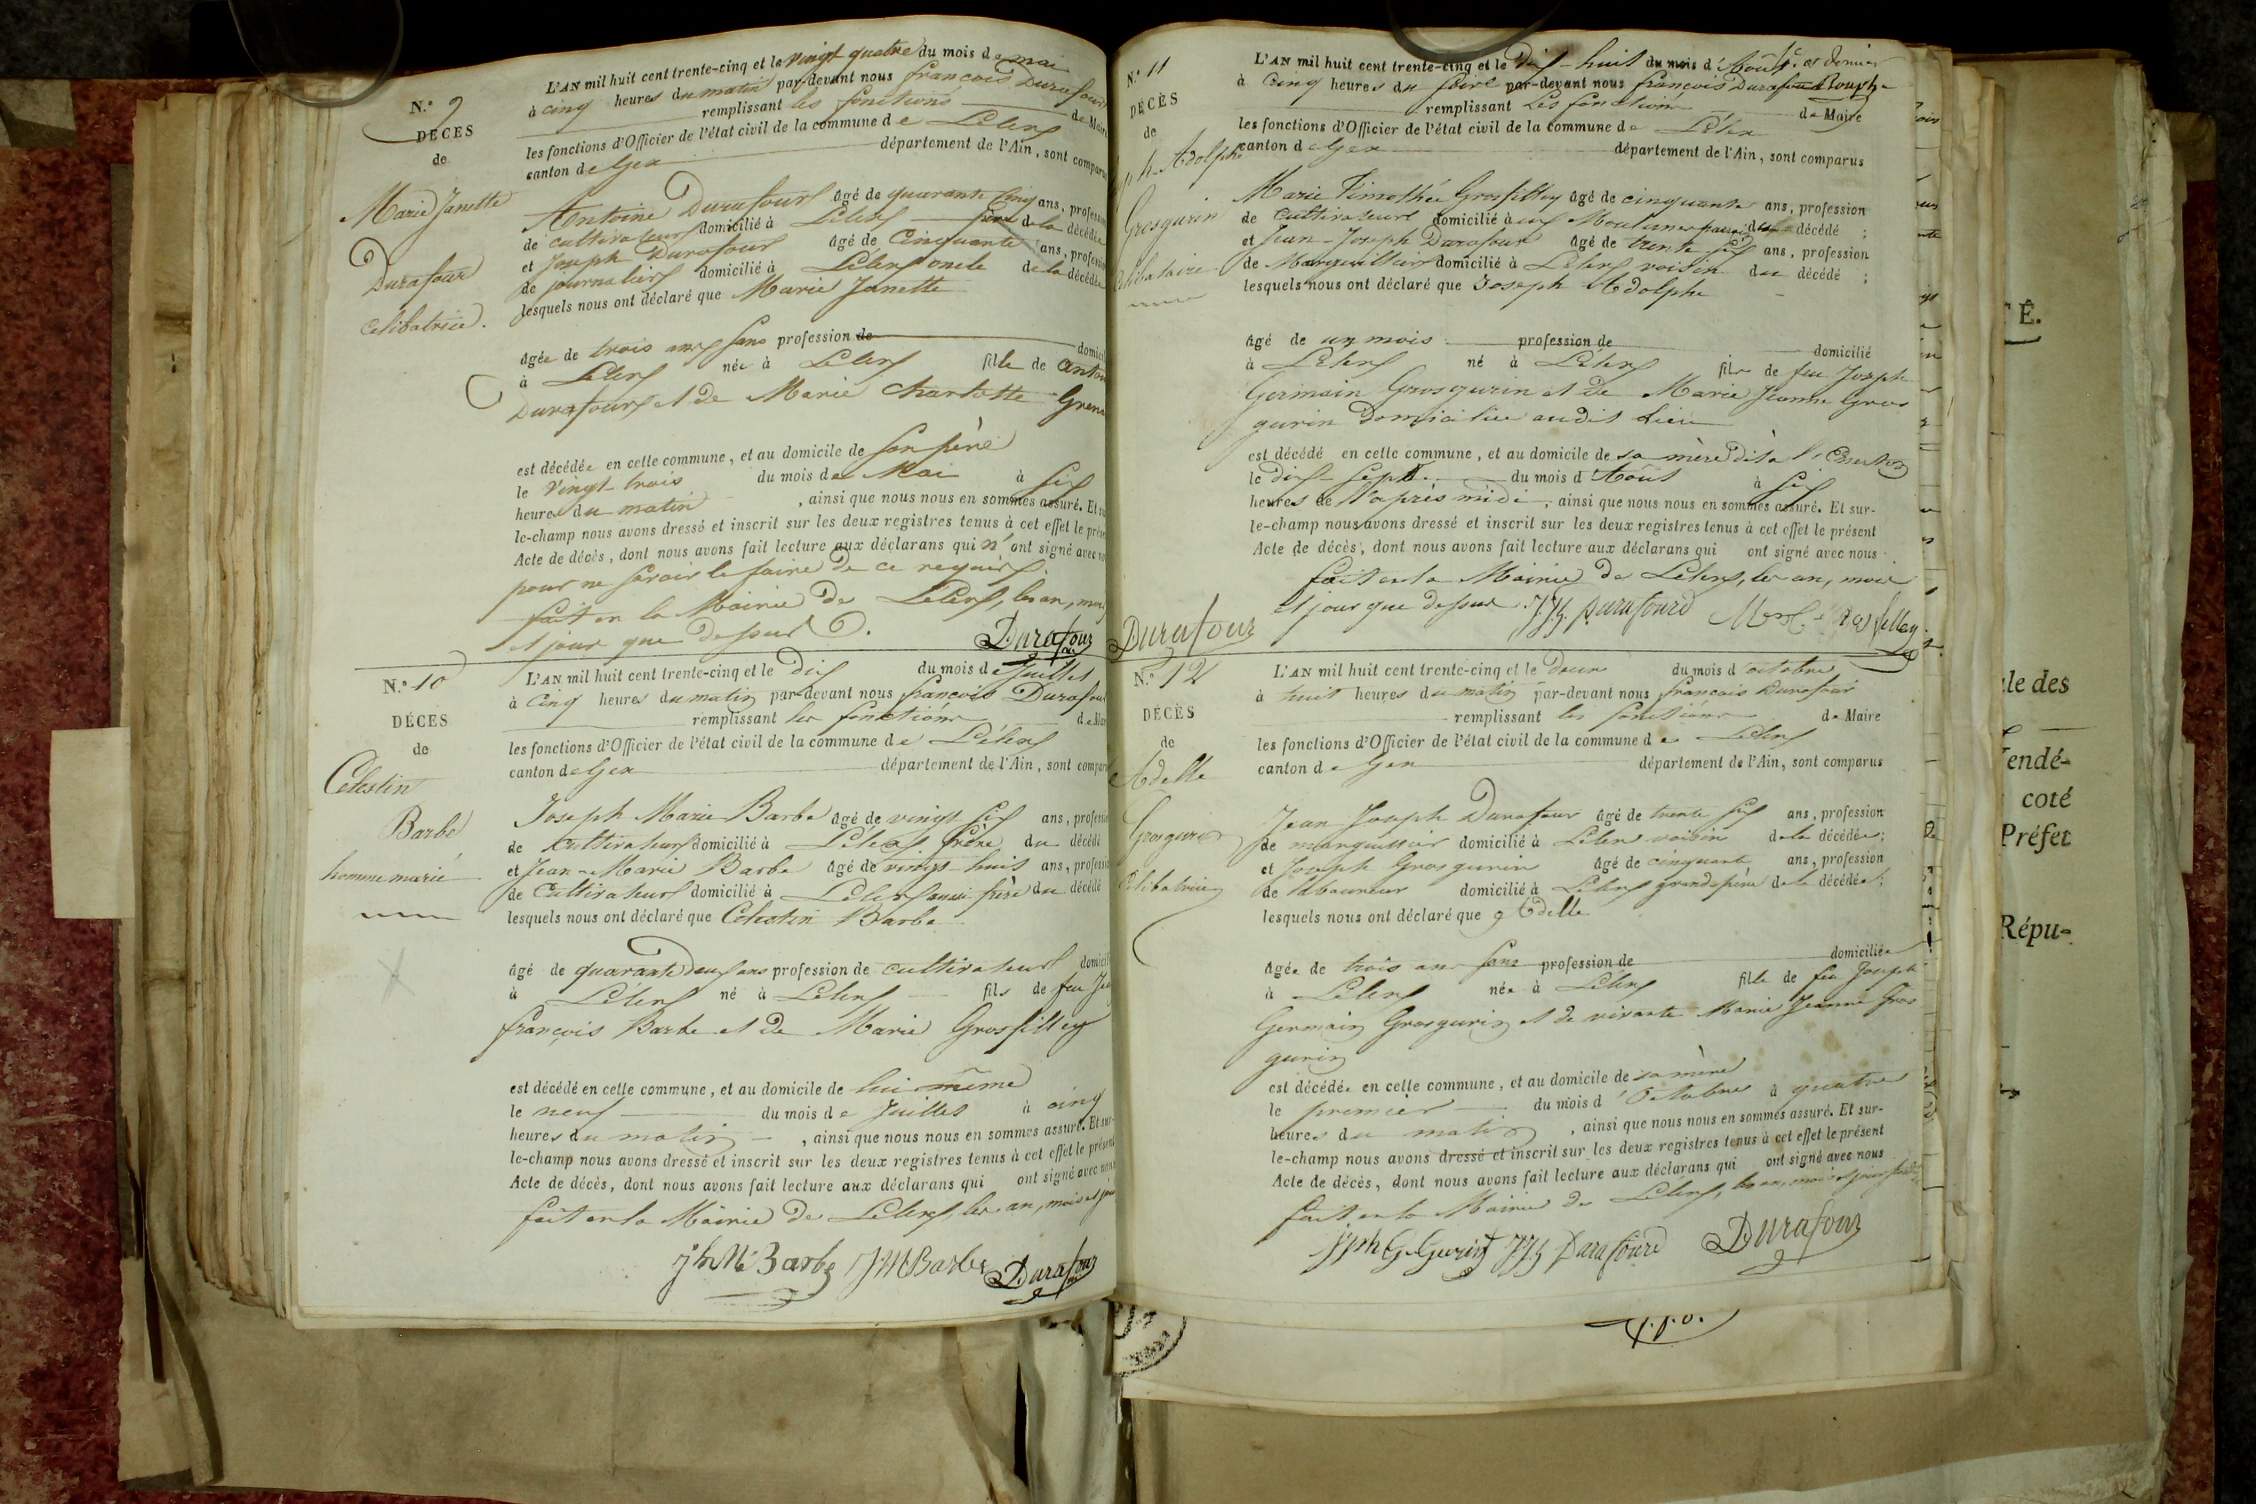 N.° 9
DÉCES
de
Marie Janette
Durafour
Celibatrice.
L'AN mil huit cent trente-cinq et le vingt quatre du mois de mai
à cinq heures du matin par-devant nous françois Durafour
remplissant les fonctions de Maire
les fonctions d'Officier de l'état civil de la commune de Lelex
canton de Gex département de l'Ain, sont comparus
Antoine Durafour âgé de quarante cinq ans, profession
de cultivateur domicilié à Lelex père de la décédée
et Joseph Durafour âgé de Cinquante ans, profession
de journalier domicilié à Lelex oncle de la décédée
lesquels nous ont déclaré que Marie Janette
âgée de trois ans sans profession de domicil
à Lelex née à Lelex fille de Antoi
Durafour et de Marie Charlotte Gren
est décédée en cette commune, et au domicile de son père
le vingt trois du mois de Mai à six
heures du matin, ainsi que nous nous en sommes assuré. Et su
le-champ nous avons dressé et inscrit sur les deux registres tenus à cet effet le prése
Acte de décès, dont nous avons fait lecture aux déclarans qui n'ont signé avec no
pour ne savoir le faire de ce requis.
fait en la Mairie de Lelex, les an, mois
et jour que dessus.
Durafour
N.° 10
DÉCES
de
Célestin
Barbe
homme marié
L'AN mil huit cent trente-cinq et le dix du mois de Juillet
à cinq heures du matin par-devant nous françois Durafour
remplissant les fonctions de Maire
les fonctions d'Officier de l'état civil de la commune de Lélex
canton de Gex département de l'Ain, sont compar
Joseph Marie Barbe âgé de vingt six ans, profession
de Cultivateur domicilié à Lélex frère du décédé
et Jean-Marie Barbe âgé de vingt-huit ans, profession
de Cultivateur domicilié à Lélex aussi frère du décédé
lesquels nous ont déclaré que Celestin Barbe
âgé de quarante deux ans profession de cultivateur domicil
à Lélex né à Lelex fils de feu Jea
françois Barbe et de Marie Grosfilley
est décédé en cette commune, et au domicile de lui même
le neuf du mois de Juillet à cinq
heures du matin, ainsi que nous nous en sommes assuré. Et sur-
le-champ nous avons dressé et inscrit sur les deux registres tenus à cet effet le présent
Acte de décès, dont nous avons fait lecture aux déclarans qui ont signé avec nous
fait en la Mairie de Lelex, les an, mois et jour
Jh Me Barbe JM Barbe Durafour
N.° 11
DÉCÈS
de
ph Adolphe
Grosgurin
Celibataire
L'AN mil huit cent trente-cinq et le Dix-huit du mois d'Août
à cinq heures du soir par-devant nous françois Durafour
remplissant les fonctions de Maire
les fonctions d'Officier de l'état civil de la commune de Lélex
canton de Gex département de l'Ain, sont comparus
Marie Timothée Grosfilley âgé de cinquante ans, profession
de cultivateur domicilié à décédé ;
et Jean-Joseph Durafour âgé de trente six ans, profession
de Marguillier domicilié à Lelex voisin du décédé ;
lesquels nous ont déclaré que Joseph Adolphe
âgé de un mois profession de domicilié
à Lelex né à Lelex fils de feu Joseph
Germain Grosgurin et de Marie Jeanne Gros
gurin domiciliée audit Lieu
est décédé en cette commune, et au domicile de sa mère dit à
le dix-sept du mois d'Août à six
heures de l'après midi, ainsi que nous nous en sommes assuré. Et sur-
le-champ nous avons dressé et inscrit sur les deux registres tenus à cet effet le présent
Acte de décès, dont nous avons fait lecture aux déclarans qui ont signé avec nous
fait en la Mairie de Lelex, les an, mois
et jour que dessus. JJh Durafourd
Durafour
N.° 12
DÉCÈS
de
Adelle
Grosgurin
Celibatrice
L'AN mil huit cent trente-cinq et le deux du mois d'octobre
à huit heures du matin par-devant nous françois Durafour
remplissant les fonctions de Maire
les fonctions d'Officier de l'état civil de la commune de Lelex
canton de Gex département de l'Ain, sont comparus
Jean Joseph Durafour âgé de trente six ans, profession
de marguillier domicilié à Lelex voisin de la décédée;
et Joseph Grosgurin âgé de cinquante ans, profession
de laboureur domicilié à Lelex grand père de la décédée;
lesquels nous ont déclaré que Adelle
âgée de trois ans sans profession de domiciliée
à Lelex née à Lélex fille de feu Joseph
Germain Grosgurin et de vivante Marie Jeanne Gros
gurin
est décédée en cette commune, et au domicile de sa mère
le premier du mois d'Octobre à quatre
heures du matin, ainsi que nous nous en sommes assuré. Et sur-
le-champ nous avons dressé et inscrit sur les deux registres tenus à cet effet le présent
Acte de décès, dont nous avons fait lecture aux déclarans qui ont signé avec nous
fait en la Mairie de Lelex, les an, mois et jour
Jph G Gurin JJh Durafourd Durafour
TÉ.
ale des
Vendé-
coté
Préfet
Répu-